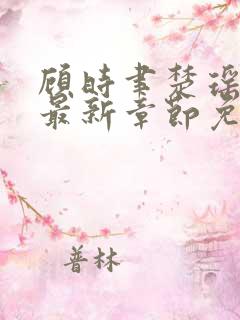 顾时聿楚瑶
最新章节免
普林